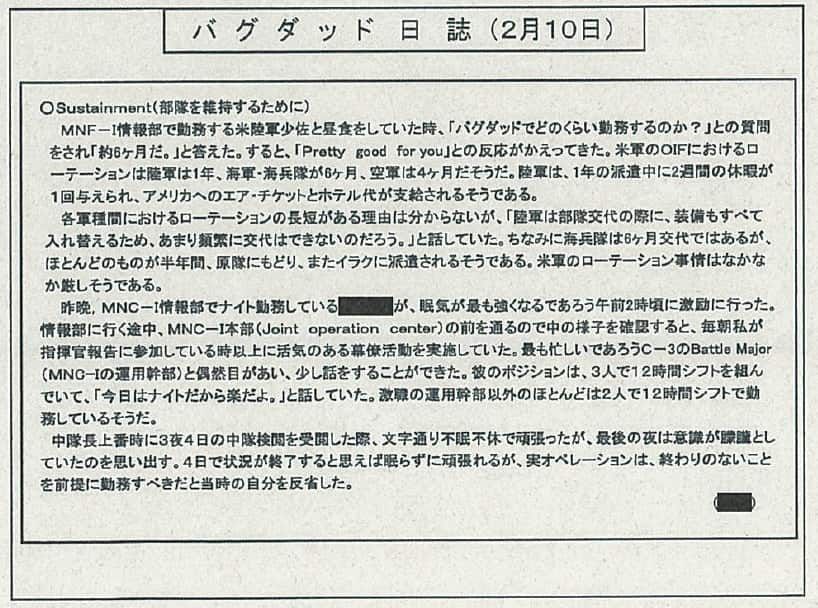 バグダッド日誌（2月10日）
○Sustainment（部隊を維持するために）
MNF－I情報部で勤務する米陸軍少佐と昼食をしていた時、「バグダッドでどのくらい勤務するのか？」との質問
をされ「約6ヶ月だ。」と答えた。すると、「Pretty good for you」との反応がかえってきた。米軍のOIFにおけるロ
ーテーションは陸軍は1年、海軍・海兵隊が6ヶ月、空軍は4ヶ月だそうだ。陸軍は、1年の派遣中に2週間の休暇が
1回与えられ、アメリカへのエア・チケットとホテル代が支給されるそうである。
各軍種間におけるローテーションの長短がある理由は分からないが、「陸軍は部隊交代の際に、装備もすべて
入れ替えるため、あまり頻繁に交代はできないのだろう。」と話していた。ちなみに海兵隊は6ヶ月交代ではあるが、
ほとんどのものが半年間、原隊にもどり、またイラクに派遣されるそうである。米軍のローテーション事情はなかな
か厳しそうである。
昨晩，MNC－I情報部でナイト勤務している が、眠気が最も強くなるであろう午前2時頃に激励に行った。
情報部に行く途中、MNC－I本部（Joint operation center）の前を通るので中の様子を確認すると、毎朝私が
指揮官報告に参加している時以上に活気のある幕僚活動を実施していた。最も忙しいであろうC－3のBattle Major
（MNC-Iの運用幹部）と偶然目があい、少し話をすることができた。彼のポジションは、3人で12時間シフトを組ん
でいて、「今日はナイトだから楽だよ。」と話していた。激職の運用幹部以外のほとんどは2人で12時間シフトで勤
務しているそうだ。
中隊長上番時に3夜4日の中隊検閲を受閲した際、文字通り不眠不休で頑張ったが、最後の夜は意識が朦朧とし
ていたのを思い出す。4日で状況が終了すると思えば眠らずに頑張れるが、実オペレーションは、終わりのないこと
を前提に勤務すべきだと当時の自分を反省した。
（ ）